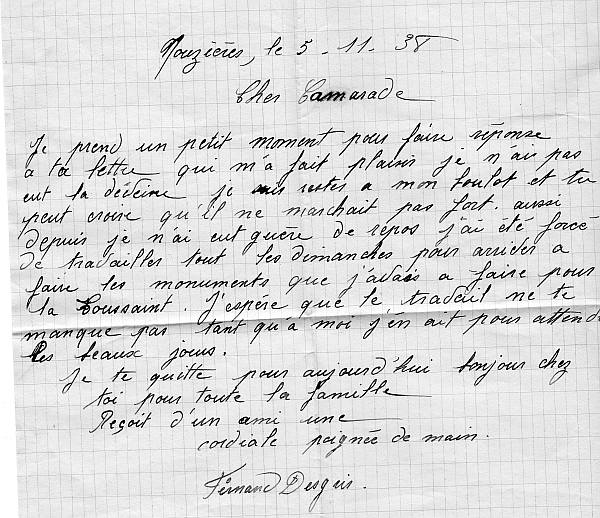 Mouzières, le 5-11-38
Cher Camarade
Je prend un petit moment pour faire réponse
a ta lettre qui m'a fait plaisir je n'ai pas
eut la déveine je suis restes a mon boulot et tu
peut croire qu'Il ne marchait pas fort. aussi
depuis je n'ai eut guère de repos j'ai été forcé
de travailler tout les dimanches pour arriver a
faire les monuments que j'avais a faire pour
la Toussaint. J'espère que le travail ne te
manque pas tant qu'à moi j'én ait pour attend
les beaux jours.
Je te quitte pour aujourd'hui bonjour chez
toi pour toute la famille
Reçoit d'un ami une
cordiale poignée de main.
Fernand